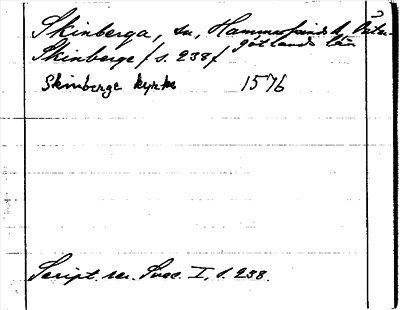 Skinberga, sn, Hammarkinds h, Öster-
götlands län
Skinberge / s. 238 /
Skinberge kyrka 1576
Script. rer. Svec. I, s. 238.